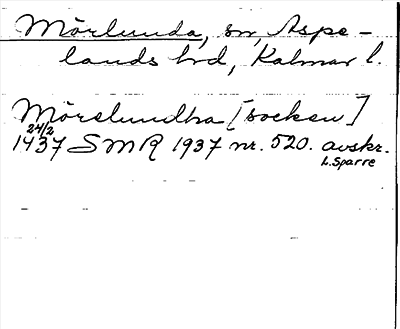 Mörlunda, sn, Aspe-
lands hd, Kalmar l.
Mörslundha [socken]
24/2
1437 SMR 1937 nr. 520. avskr.
L. Sparre